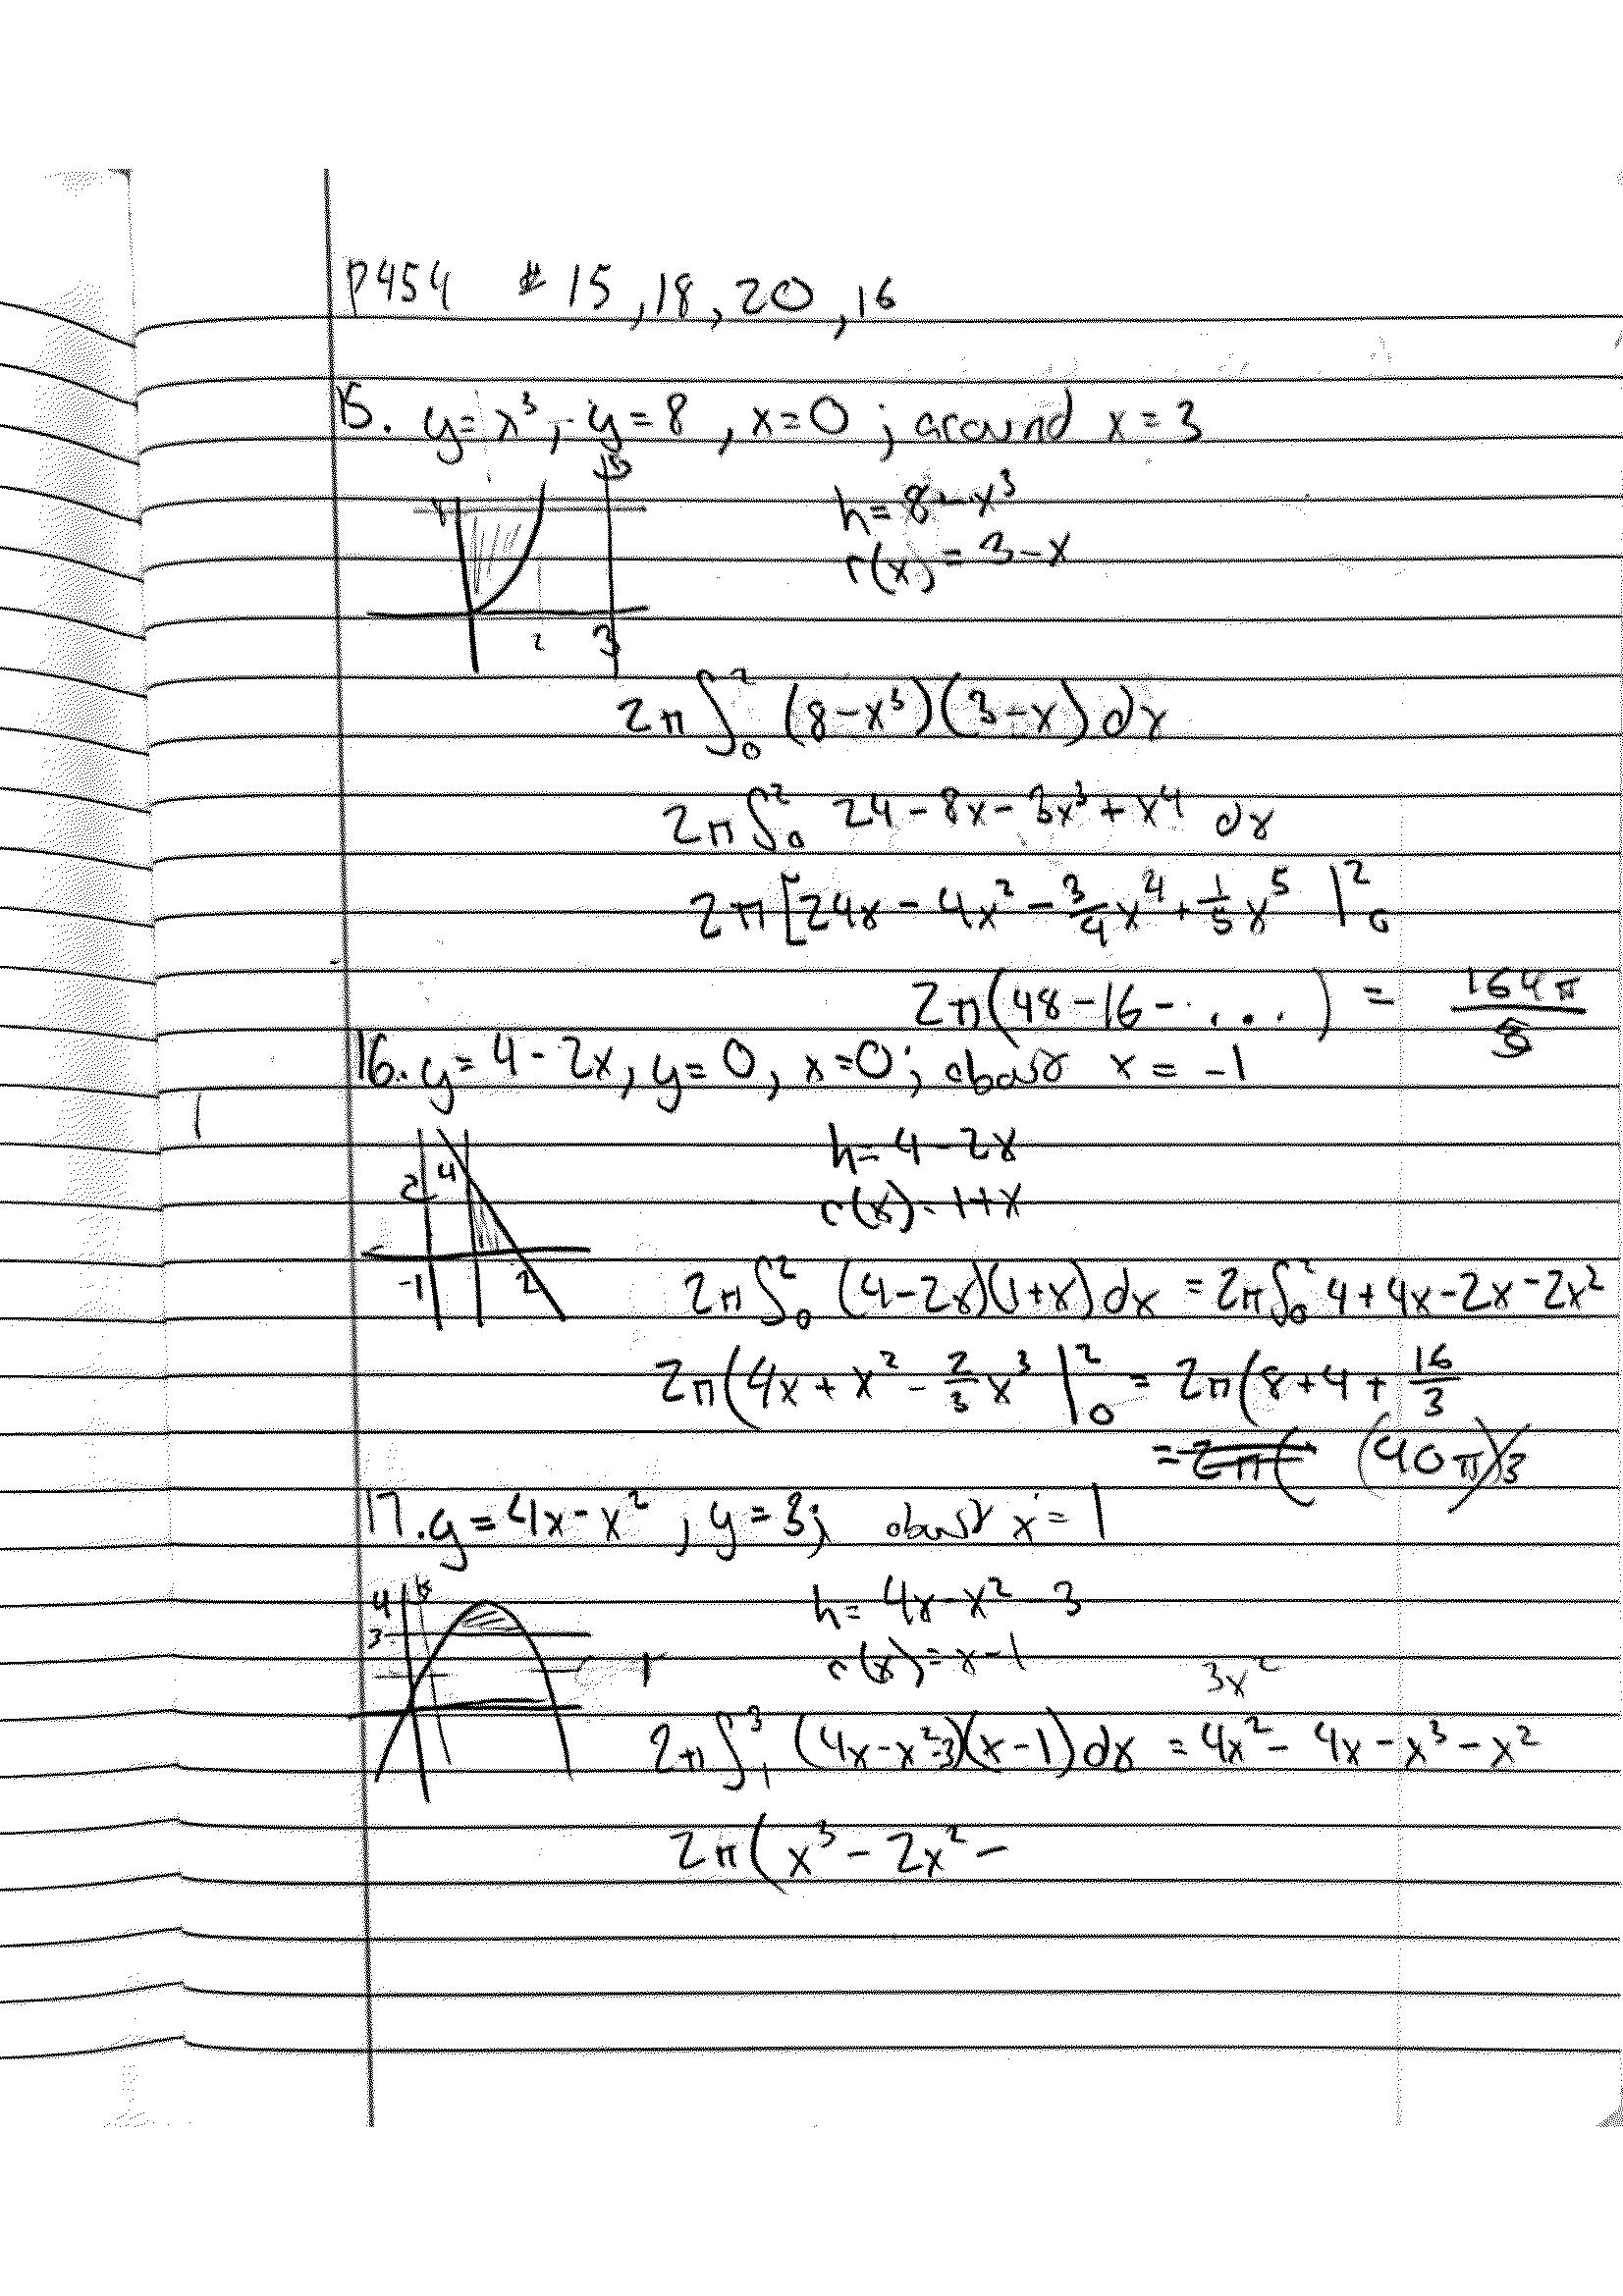 P454 # 15, 18, 20, 16
15. y = x³, y = 8, x = 0; around x = 3
h = 8 - x³
r(x) = 3 - x
2 3
2π∫₀² (8 - x³)(3 - x) dx
2π∫₀² 24 - 8x - 3x³ + x⁴ dx
2π[24x - 4x² - 3/4 x⁴ + 1/5 x⁵ |₀²
2π(48 - 16 - ....) = 164π/5
16. y = 4 - 2x, y = 0, x = 0; about x = -1
h = 4 - 2x
4
r(x) = 1 + x
-1 2
2π∫₀² (4 - 2x)(1 + x) dx = 2π∫₀² 4 + 4x - 2x - 2x²
2π(4x + x² - 2/3 x³ |₀² = 2π(8 + 4 + 16/3
= 2π( (40π)/3
17. y = 4x - x², y = 3; about x = 1
4
h = 4x - x² - 3
3
r(x) = x - 1
3x²
2π∫₁³ (4x - x² - 3)(x - 1) dx = 4x² - 4x - x³ - x²
2π(x³ - 2x² -